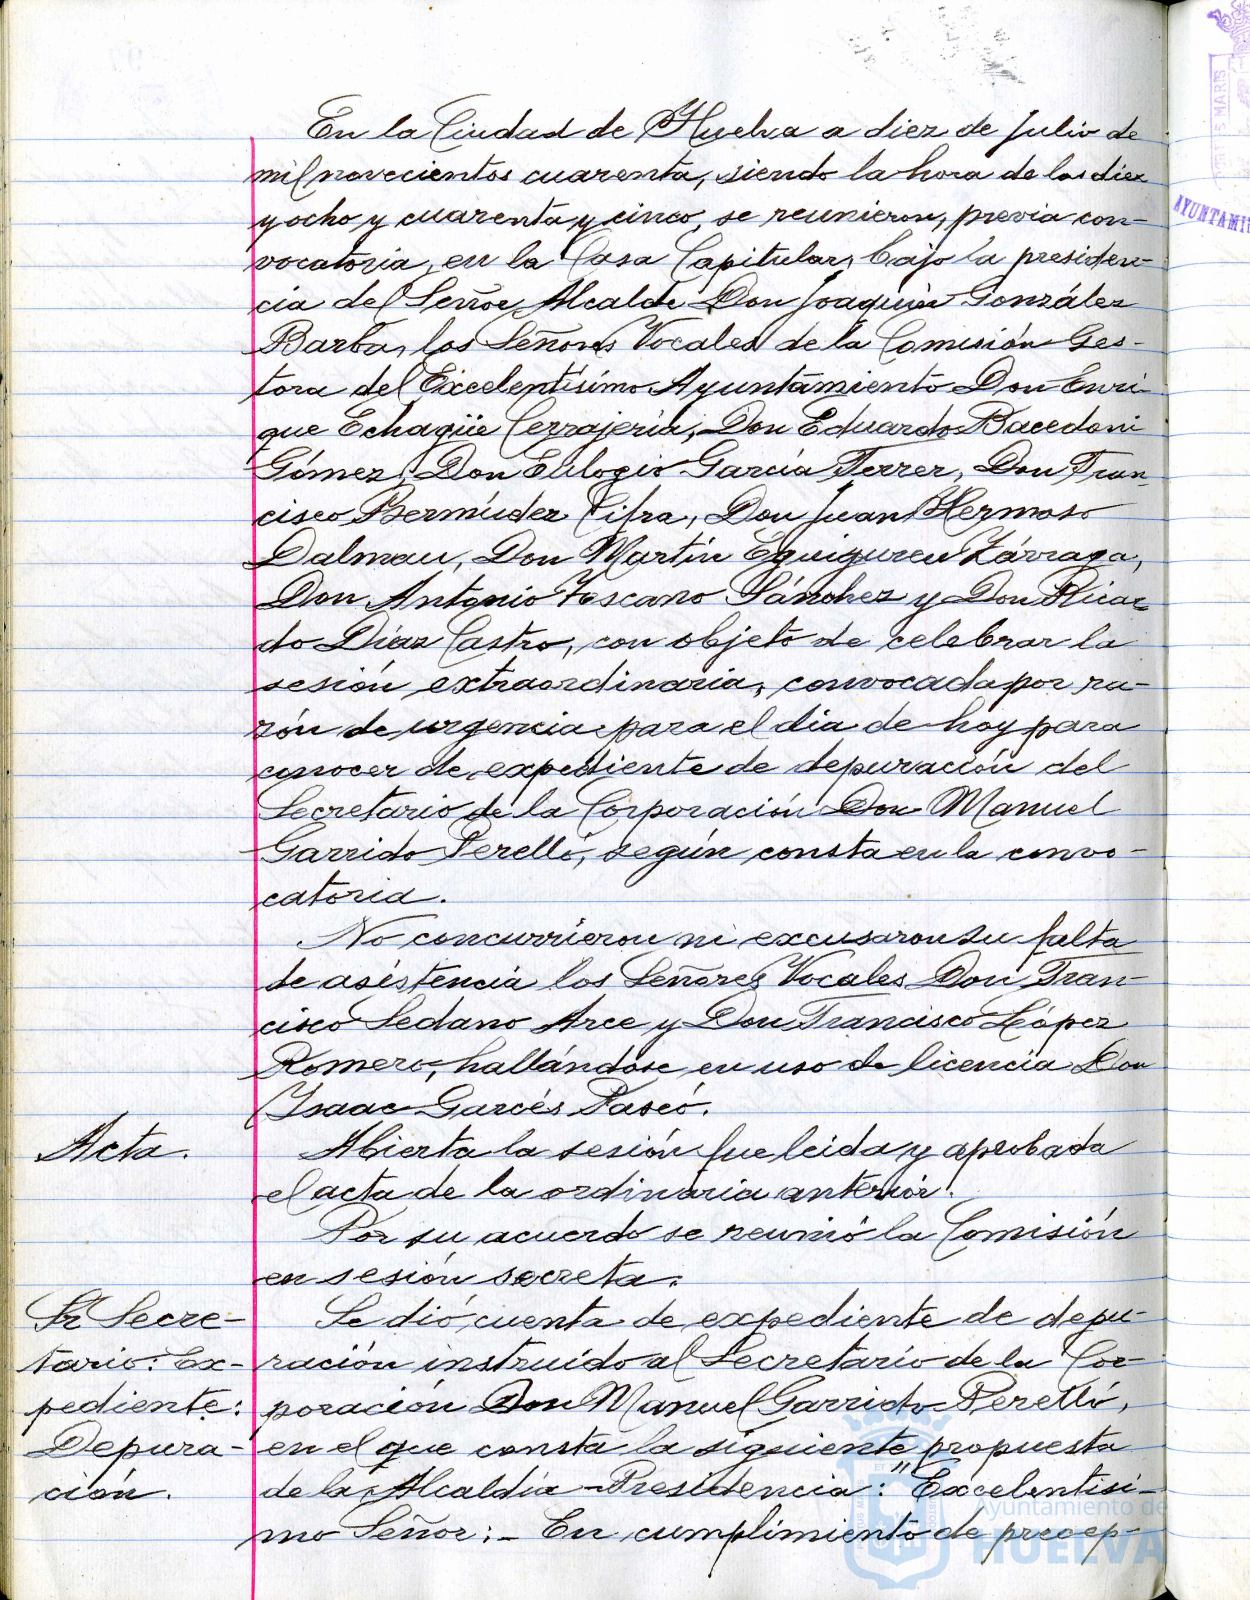 En la Ciudad de Huelva a diez de Julio de
mil novecientos cuarenta, siendo la hora de las diez
y ocho y cuarenta y cinco, se reunieron, previa con-
vocatoria, en la Casa Capitular, bajo la presiden-
cia del Señor Alcalde Don Joaquín González
Barba, los Señores Vocales de la Comisión Ges-
tora del Excelentísimo Ayuntamiento Don Enri-
que Echagüe Cerrajería, Don Eduardo Bacedoni
Gómez, Don Eulogio García Ferrer, Don Fran-
cisco Bermúdez Cifra, Don Juan Hermoso
Dalmau, Don Martín Eguiguren Zárraga,
Don Antonio Toscano Sánchez y Don Ricar
do Díaz Castro, con objeto de celebrar la
sesión extraordinaria, convocada por ra-
zón de urgencia para el día de hoy para
conocer de expediente de depuración del
Secretario de la Corporación Don Manuel
Garrido Perelló, según consta en la convo-
catoria.
No concurrieron ni excusaron su falta
de asistencia los Señores Vocales Don Fran-
cisco Sedano Arce y Don Francisco López
Romero, hallándose en uso de licencia Don
Isaac Garcés Paseó.
Acta.
Abierta la sesión fue leida y aprobada
el acta de la ordinaria anterior.
Por su acuerdo se reunió la Comisión
en sesión secreta.
Sr Secre-
tario: Ex-
pediente:
Depura-
ción.
Se dió cuenta de expediente de depu-
ración instruido al Secretario de la Cor-
poración Don Manuel Garrido Perelló,
en el que consta la siguiente propuesta
de la Alcaldía-Presidencia: "Excelentísi-
mo Señor:- En cumplimiento de precep-
Ayuntamiento de
HUELVA